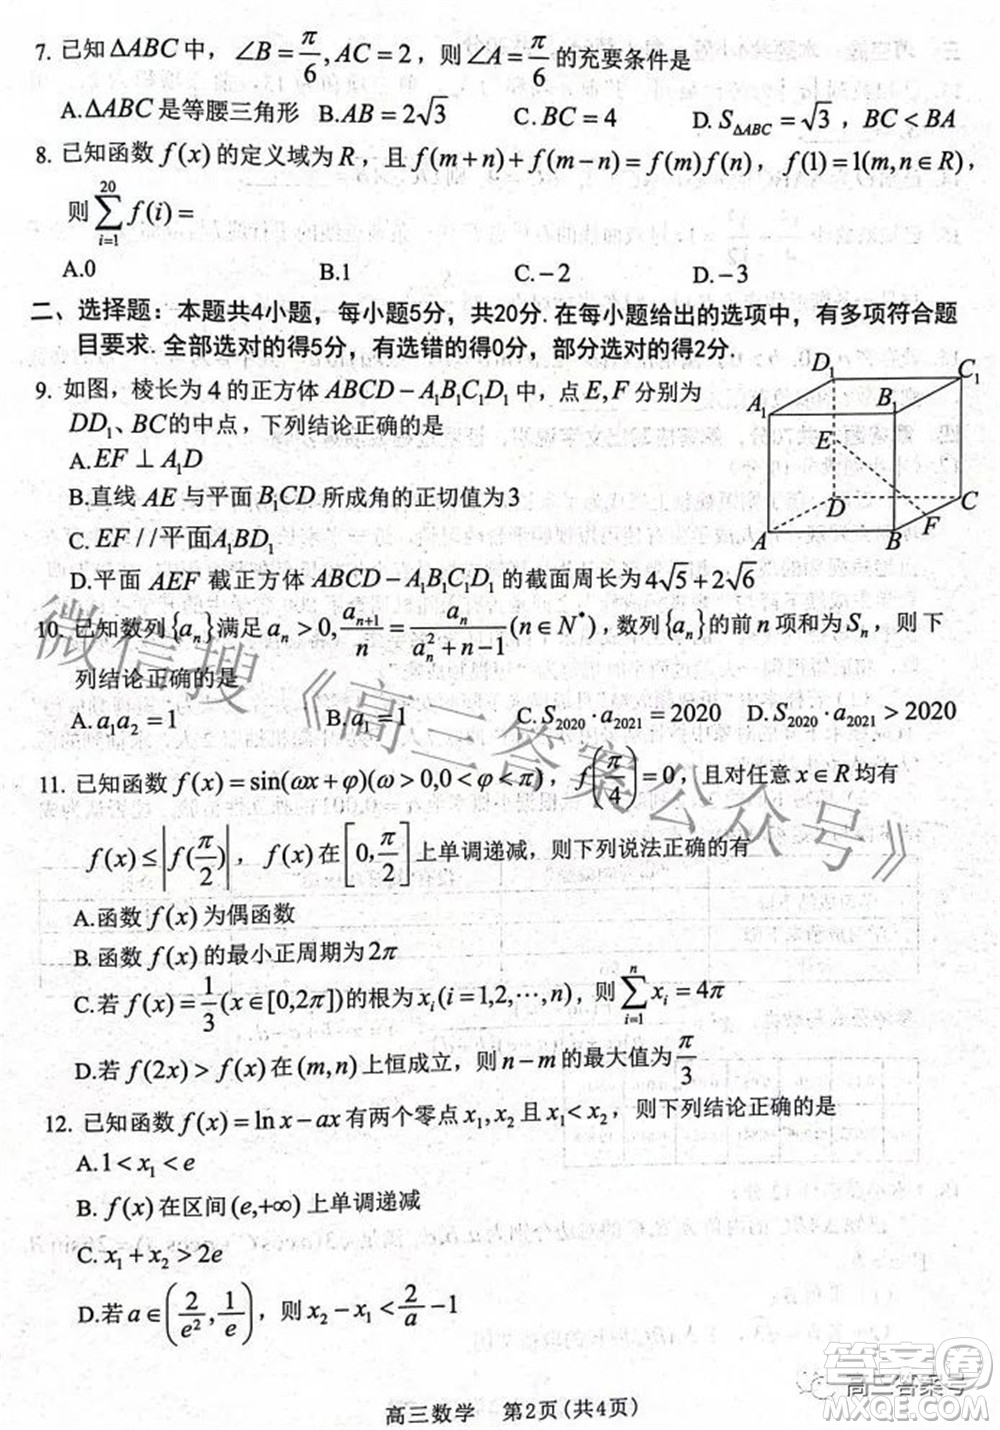 7. 已知 ΔABC 中，∠B = π/6, AC = 2，则 ∠A = π/6 的充要条件是
A. ΔABC 是等腰三角形 B. AB = 2√3 C. BC = 4 D. S_{ΔABC} = √3，BC < BA
8. 已知函数 f(x) 的定义域为 R，且 f(m+n) + f(m−n) = f(m)f(n)，f(1) = 1(m,n∈R)，
则 ∑_{i=1}^{20} f(i) =
A.0 B.1 C.−2 D.−3
二、选择题：本题共4小题，每小题5分，共20分.在每小题给出的选项中，有多项符合题
目要求.全部选对的得5分，有选错的得0分，部分选对的得2分.
9. 如图，棱长为 4 的正方体 ABCD − A₁B₁C₁D₁ 中，点 E, F 分别为
DD₁、BC 的中点，下列结论正确的是
A. EF ⊥ A₁D
B. 直线 AE 与平面 B₁CD 所成角的正切值为 3
C. EF // 平面 A₁BD₁
D. 平面 AEF 截正方体 ABCD − A₁B₁C₁D₁ 的截面周长为 4√5 + 2√6
D₁ C₁
A₁ B₁
E
D C
F
A B
10. 已知数列 {aₙ} 满足 aₙ > 0, aₙ₊₁/n = aₙ/(aₙ² + n − 1) (n∈N*)，数列 {aₙ} 的前 n 项和为 Sₙ，则下
列结论正确的是
A. a₁a₂ = 1 B. a₁ = 1 C. S₂₀₂₀ · a₂₀₂₁ = 2020 D. S₂₀₂₀ · a₂₀₂₁ > 2020
11. 已知函数 f(x) = sin(ωx + φ)(ω > 0, 0 < φ < π)，f(π/4) = 0，且对任意 x∈R 均有
f(x) ≤ |f(π/2)|，f(x) 在 [0, π/2] 上单调递减，则下列说法正确的有
A. 函数 f(x) 为偶函数
B. 函数 f(x) 的最小正周期为 2π
C. 若 f(x) = 1/3 (x∈[0,2π]) 的根为 xᵢ(i = 1,2,⋯,n)，则 ∑_{i=1}^{n} xᵢ = 4π
D. 若 f(2x) > f(x) 在 (m,n) 上恒成立，则 n − m 的最大值为 π/3
12. 已知函数 f(x) = ln x − ax 有两个零点 x₁, x₂ 且 x₁ < x₂，则下列结论正确的是
A. 1 < x₁ < e
B. f(x) 在区间 (e, +∞) 上单调递减
C. x₁ + x₂ > 2e
D. 若 a∈(2/e², 1/e)，则 x₂ − x₁ < 2/a − 1
高三数学 第2页(共4页)
微信搜《高三答案公众号》
高三答案号
答案圈
MXQE.COM